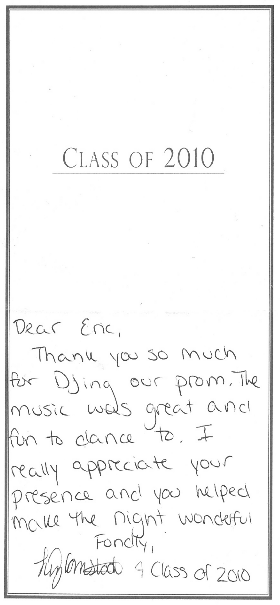 CLASS OF 2010
Dear Eric,
Thank you so much
for DJing our prom. The
music was great and
fun to dance to. I
really appreciate your
presence and you helped
make the night wonderful
Fondly,
& Class of 2010